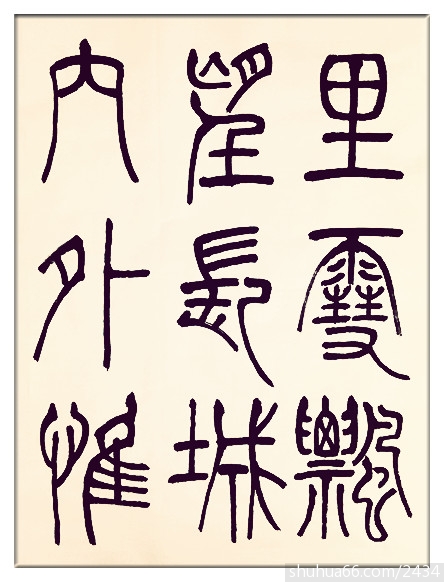 里雪飄
望長城
內外惟
shuhua66.com/2434